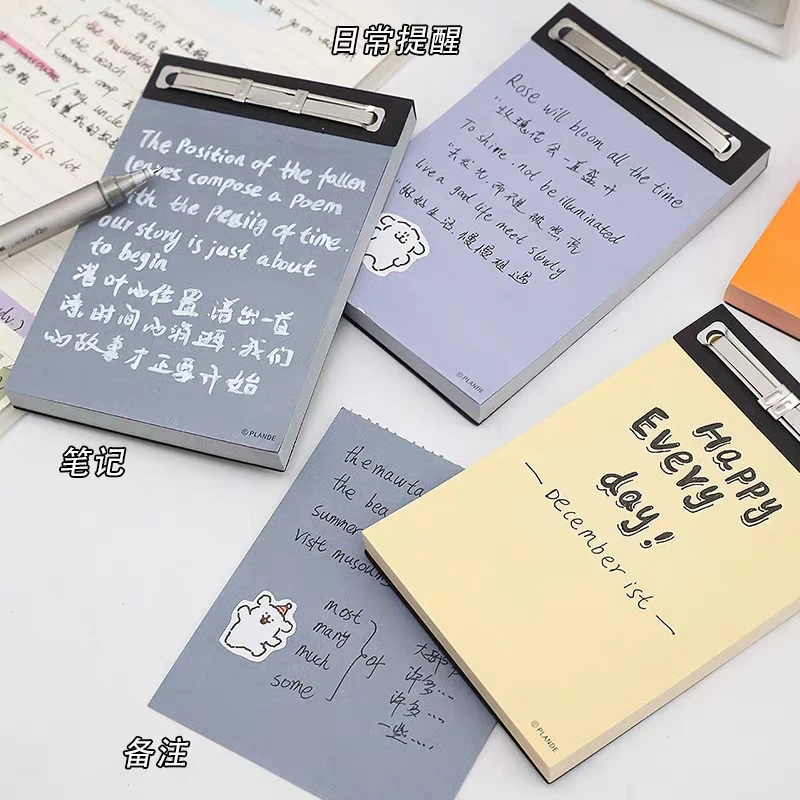 日常提醒
The Position of the fallen
leaves compose a poem
with the pesiig of time.
our story is just about
to begin
落叶的位置.谱出一首
诗.时间的消逝.我们
的故事才正要开始
© PLANDE
笔记
Rose will bloom all the time
"玫瑰花会一直盛开
To shine, not be illuminated
"去发光,而不是被照亮
live a good life meet slowly
"好好生活,慢慢相遇
© PLANDE
Happy
Every
day!
— December ist —
© PLANDE
the mawta
the bea
summer
visit musoums
most
many
much
some
of
大部分
许多...
许多...
一些....
备注
the beach
a little/a lot